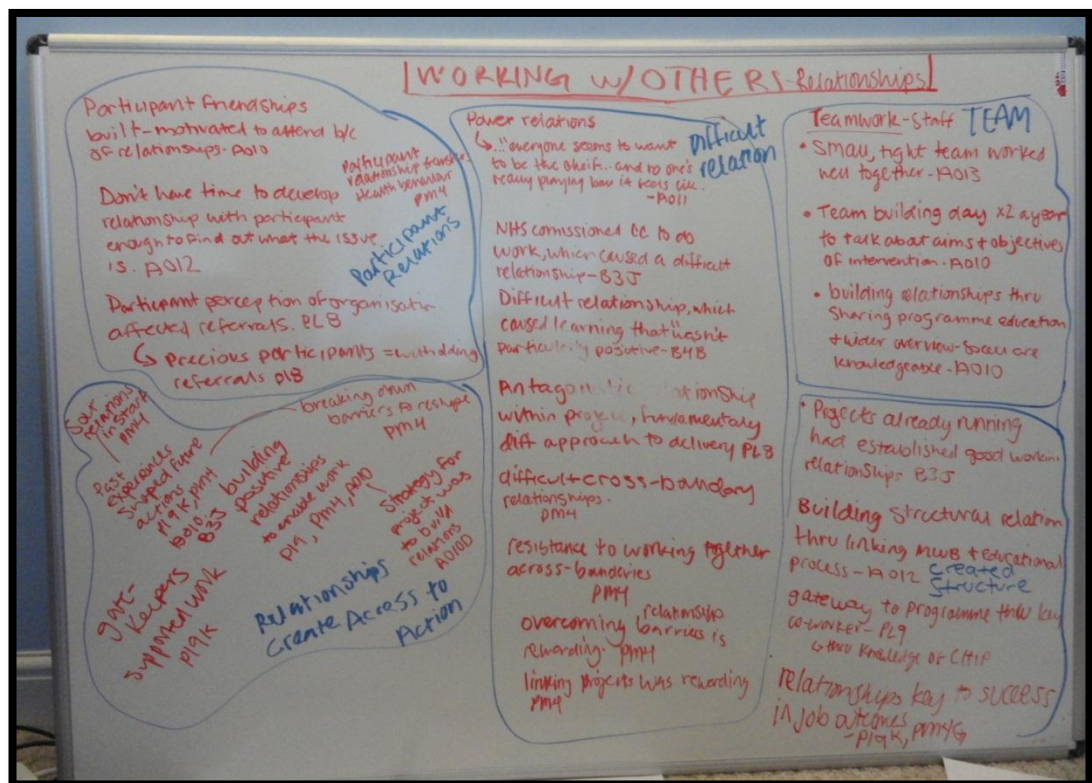 WORKING W/OTHERS-Relationships
Participant friendships
built-motivated to attend b/c
of relationships-A010
Participant
relationship transfer
Health behaviour
PM4
Don't have time to develop
relationship with participant
enough to find out what the issue
is. A012
Participant
Relations
Participant perception of organisation
affected referrals. PL8
↳ precious participants = witholding
referrals pl8
Sour
relations
in start
PM4
Past
experiences
shaped future
actions
p19k, pm4
A010
B3J
breaking down
barriers to reshape
PM4
building
positive
relationships
to enable work
PM4, A010
Strategy for
project was
to build
relations
A010D
gate-
keepers
supported work
p19k
Relationships
Create Access to
Action
Power relations
Difficult
relation
↳ "everyone seems to want
to be the cheif.. and no one's
really playing ball it feels like.
-A011
NHS comissioned CC to do
work, which caused a difficult
relationship-B3J
Difficult relationship, which
caused learning that wasn't
particularly positive-B4B
Antagonistic relationship
within project, fundamentary
diff approach to delivery PL8
difficult cross-boundary
relationships.
PM4
resistance to working together
across-bounderies
PM4
relationship
overcoming barriers is
rewarding. PM4
linking projects was rewarding
PM4
Teamwork-Staff TEAM
• Small, tight team worked
well together-A013
• Team building day x2 a year
to talk about aims + objectives
of intervention-A010
• building relationships thru
sharing programme education
+ wider overview-so all are
knowledgeable-A010
• Projects already running
had established good working
relationships B3J
Building structural relation
thru linking MWB + educational
process-A012 Created
Structure
gateway to programme thru key
co-worker-PL9
↳ thru knowledge of CHIP
relationships key to success
in job outcomes
-p19k, PM4/G